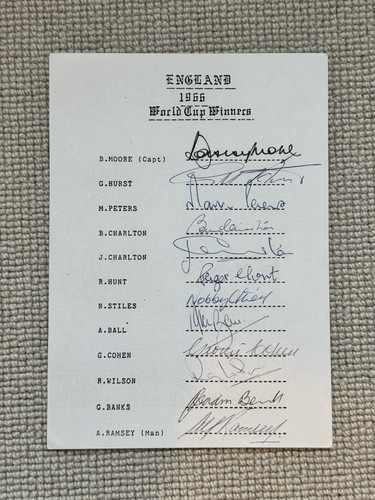 ENGLAND
1966
World Cup Winners
B.MOORE (Capt) Bobby Moore
G.HURST
M.PETERS Martin Peters
B.CHARLTON
J.CHARLTON
R.HUNT Roger Hunt
N.STILES Nobby Stiles
A.BALL
G.COHEN George Cohen
R.WILSON
G.BANKS Gordon Banks
A.RAMSEY (Man)